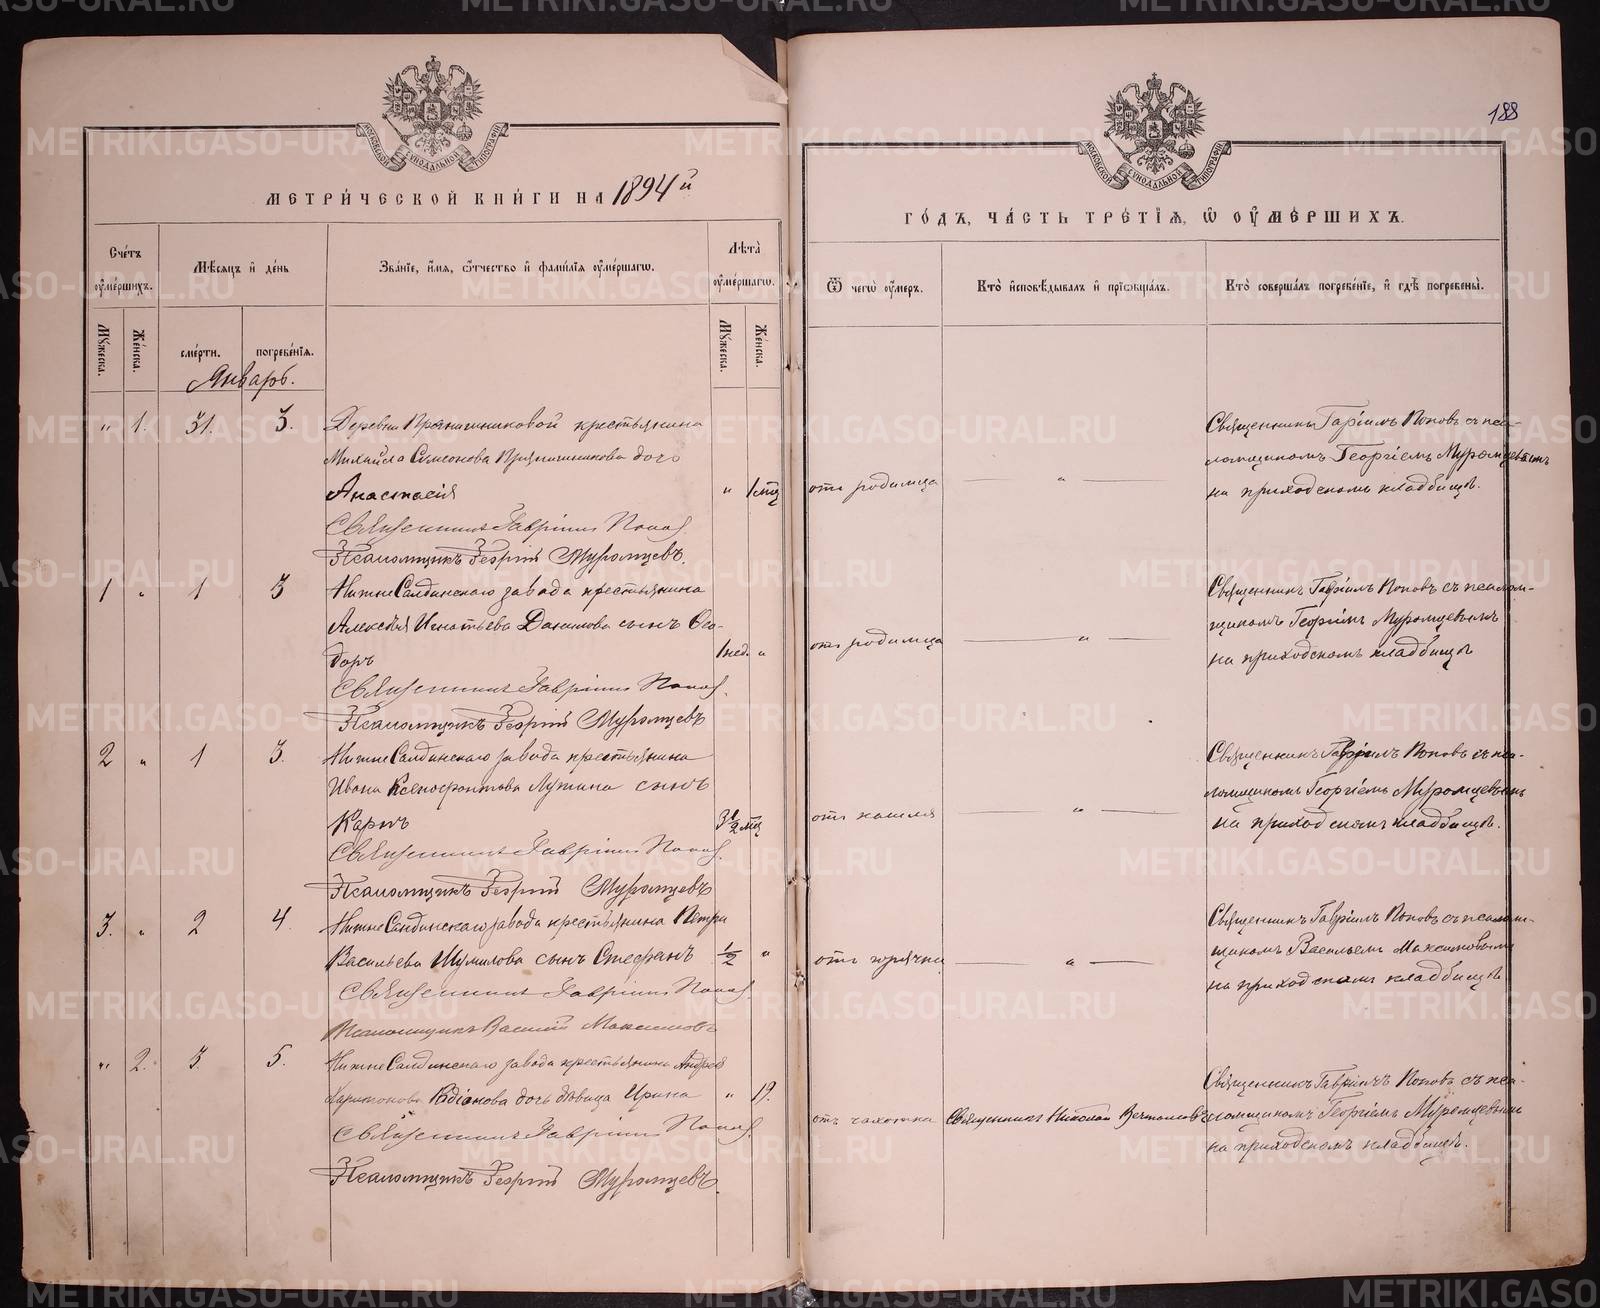 МЕТРИ́ЧЕСКОЙ КНИ́ГИ НА 1894 й
Сче́тъ ᲂу҆ме́ршихъ.
Мѣ́сяцъ и҆ де́нь
Зва́нїе, и҆́мя, ѻ҆́тчество и҆ фами́лїя ᲂу҆ме́ршагѡ.
Лѣ́та ᲂу҆ме́ршагѡ.
Мꙋ́жеска.
Же́нска.
сме́рти.
погребе́нїя.
Мꙋ́жеска.
Же́нска.
Январь.
" 1. 31. 3. Деревни Прянишниковой крестьянина
Михаила Симеонова Прянишникова дочь
Анастасія " 1 мц
Священникъ Гавріилъ Поповъ
Псаломщикъ Георгій Муромцевъ.
1 " 1 3 Нижне Салдинскаго завода крестьянина
Алексѣя Игнатьева Данилова сынъ Ѳео-
доръ 1 нед. "
Священникъ Гавріилъ Поповъ.
Псаломщикъ Георгій Муромцевъ
2 " 1 3. Нижне Салдинскаго завода крестьянина
Ивана Ксенофонтова Лутина сынъ
Карпъ 3 1/2 мц
Священникъ Гавріилъ Поповъ.
Псаломщикъ Георгій Муромцевъ
3. " 2 4. Нижне Салдинскаго завода крестьянина Петра
Васильева Шумилова сынъ Стефанъ 1/2 "
Священникъ Гавріилъ Поповъ.
Псаломщикъ Василій Максимовъ
" 2. 3. 5. Нижне Салдинскаго завода крестьянина Андрея
Харитонова Радіонова дочь дѣвица Ирина " 19.
Священникъ Гавріилъ Поповъ.
Псаломщикъ Георгій Муромцевъ.
188
ГО́ДЪ, ЧА́СТЬ ТРЕ́ТЇѦ, Ѡ҆ ОУ҆МЕ́РШИХЪ.
Ѿ чегѡ̀ ᲂу҆́меръ.
Кто̀ и҆сповѣ́дывалъ и҆ прїѡбща́лъ.
Кто̀ соверша́лъ погребе́нїе, и҆ гдѣ̀ погребены̀.
отъ родимца — " — Священникъ Гаріилъ Поповъ съ пса-
ломщикомъ Георгіемъ Муромцевымъ
на приходскомъ кладбищѣ.
отъ родимца — " — Священникъ Гавріилъ Поповъ съ псалом-
щикомъ Георгіемъ Муромцевымъ
на приходскомъ кладбищѣ
отъ кашля — " — Священникъ Гавріилъ Поповъ съ пса-
ломщикомъ Георгіемъ Муромцевымъ
на приходскомъ кладбищѣ.
отъ горячки — " — Священникъ Гавріилъ Поповъ съ псалом-
щикомъ Васильемъ Максимовымъ
на приходскомъ кладбищѣ
отъ чахотки Священникъ Николай Священникъ Гавріилъ Поповъ съ пса-
ломщикомъ Георгіемъ Муромцевымъ
на приходскомъ кладбищѣ.
МОСКОВСКОЙ СУНОДАЛЬНОЙ ТИПОГРАФІИ
МОСКОВСКОЙ СУНОДАЛЬНОЙ ТИПОГРАФІИ
METRIKI.GASO-URAL.RU